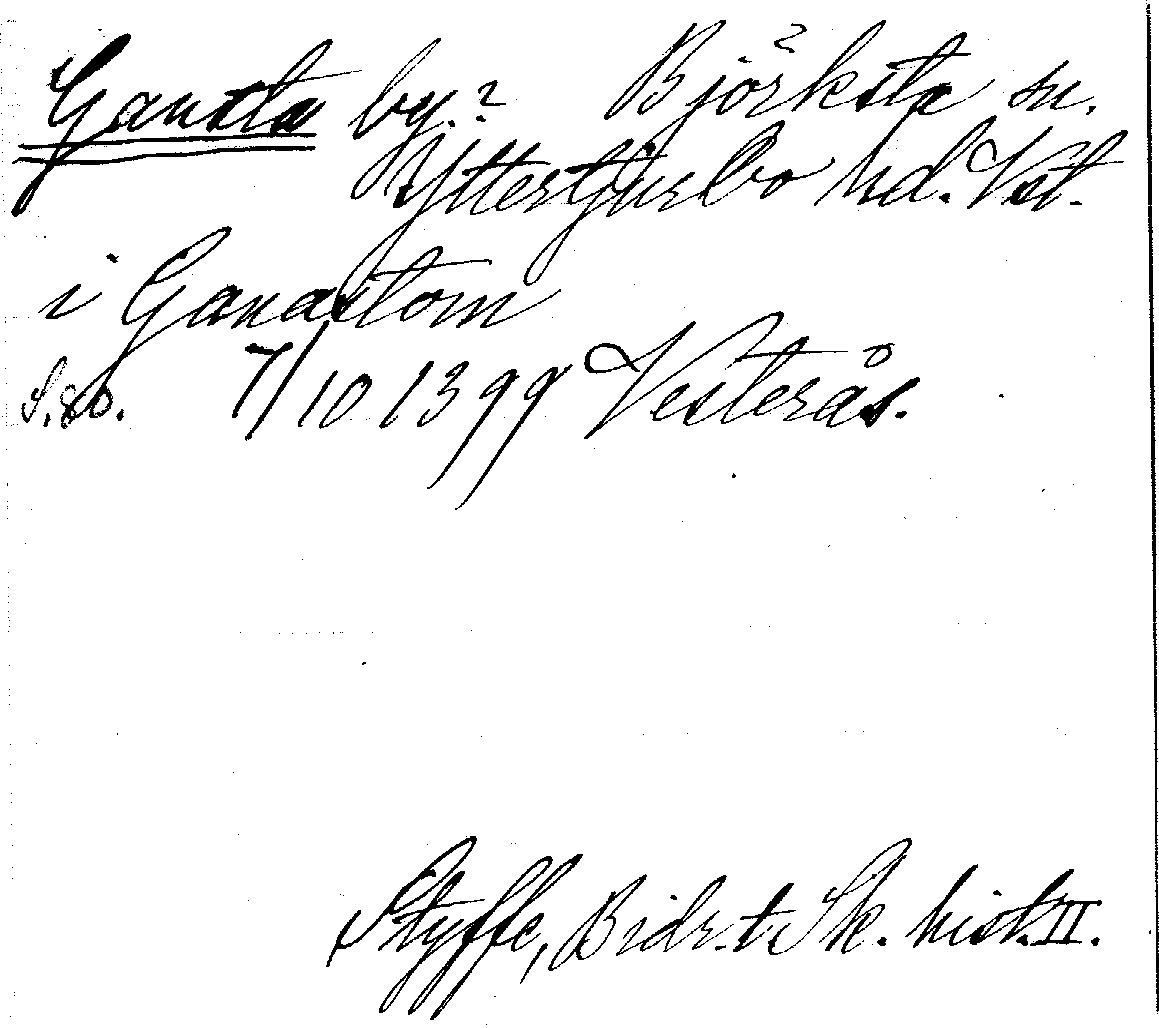 Gansta by.? Björksta sn.
Yttertjurbo hd. Vstl.
i Ganastom
S. 80. 7/10 1399 Vesterås.
Styffe, Bidr. t Sk. hist. II.